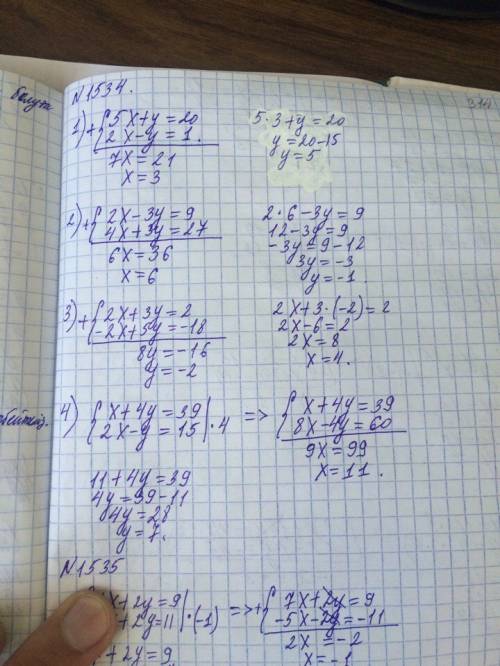 N1534.
1) + { 5x+y=20
2x-y=1.
7x=21
x=3
5·3+y=20
y=20-15
y=5
2) + { 2x-3y=9
4x+3y=27
6x=36
x=6
2·6-3y=9
12-3y=9
-3y=9-12
3y=-3
y=-1.
3) + { 2x+3y=2
-2x+5y=-18
8y=-16
y=-2
2x+3·(-2)=2
2x-6=2
2x=8
x=4.
4) { x+4y=39
2x-y=15 | ·4
=> { x+4y=39
8x-4y=60
9x=99
x=11.
11+4y=39
4y=39-11
4y=28
y=7.
N1535
x+2y=9
+2y=11 | ·(-1)
=> + { 7x+2y=9
-5x-2y=-11
2x=-2
x=-1
+2y=9